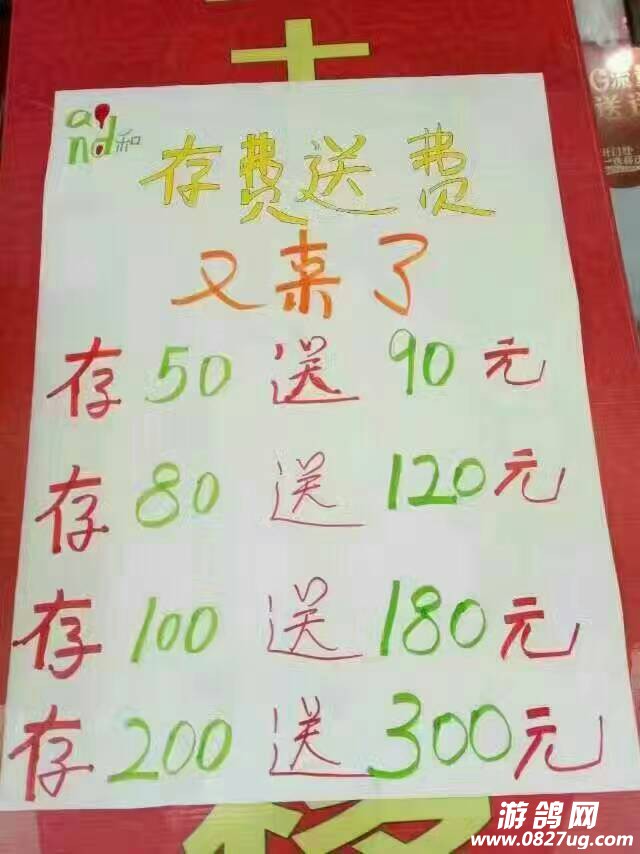 and和
存费送费
又来了
存50送90元
存80送120元
存100送180元
存200送300元
游鸽网
www.0827ug.com